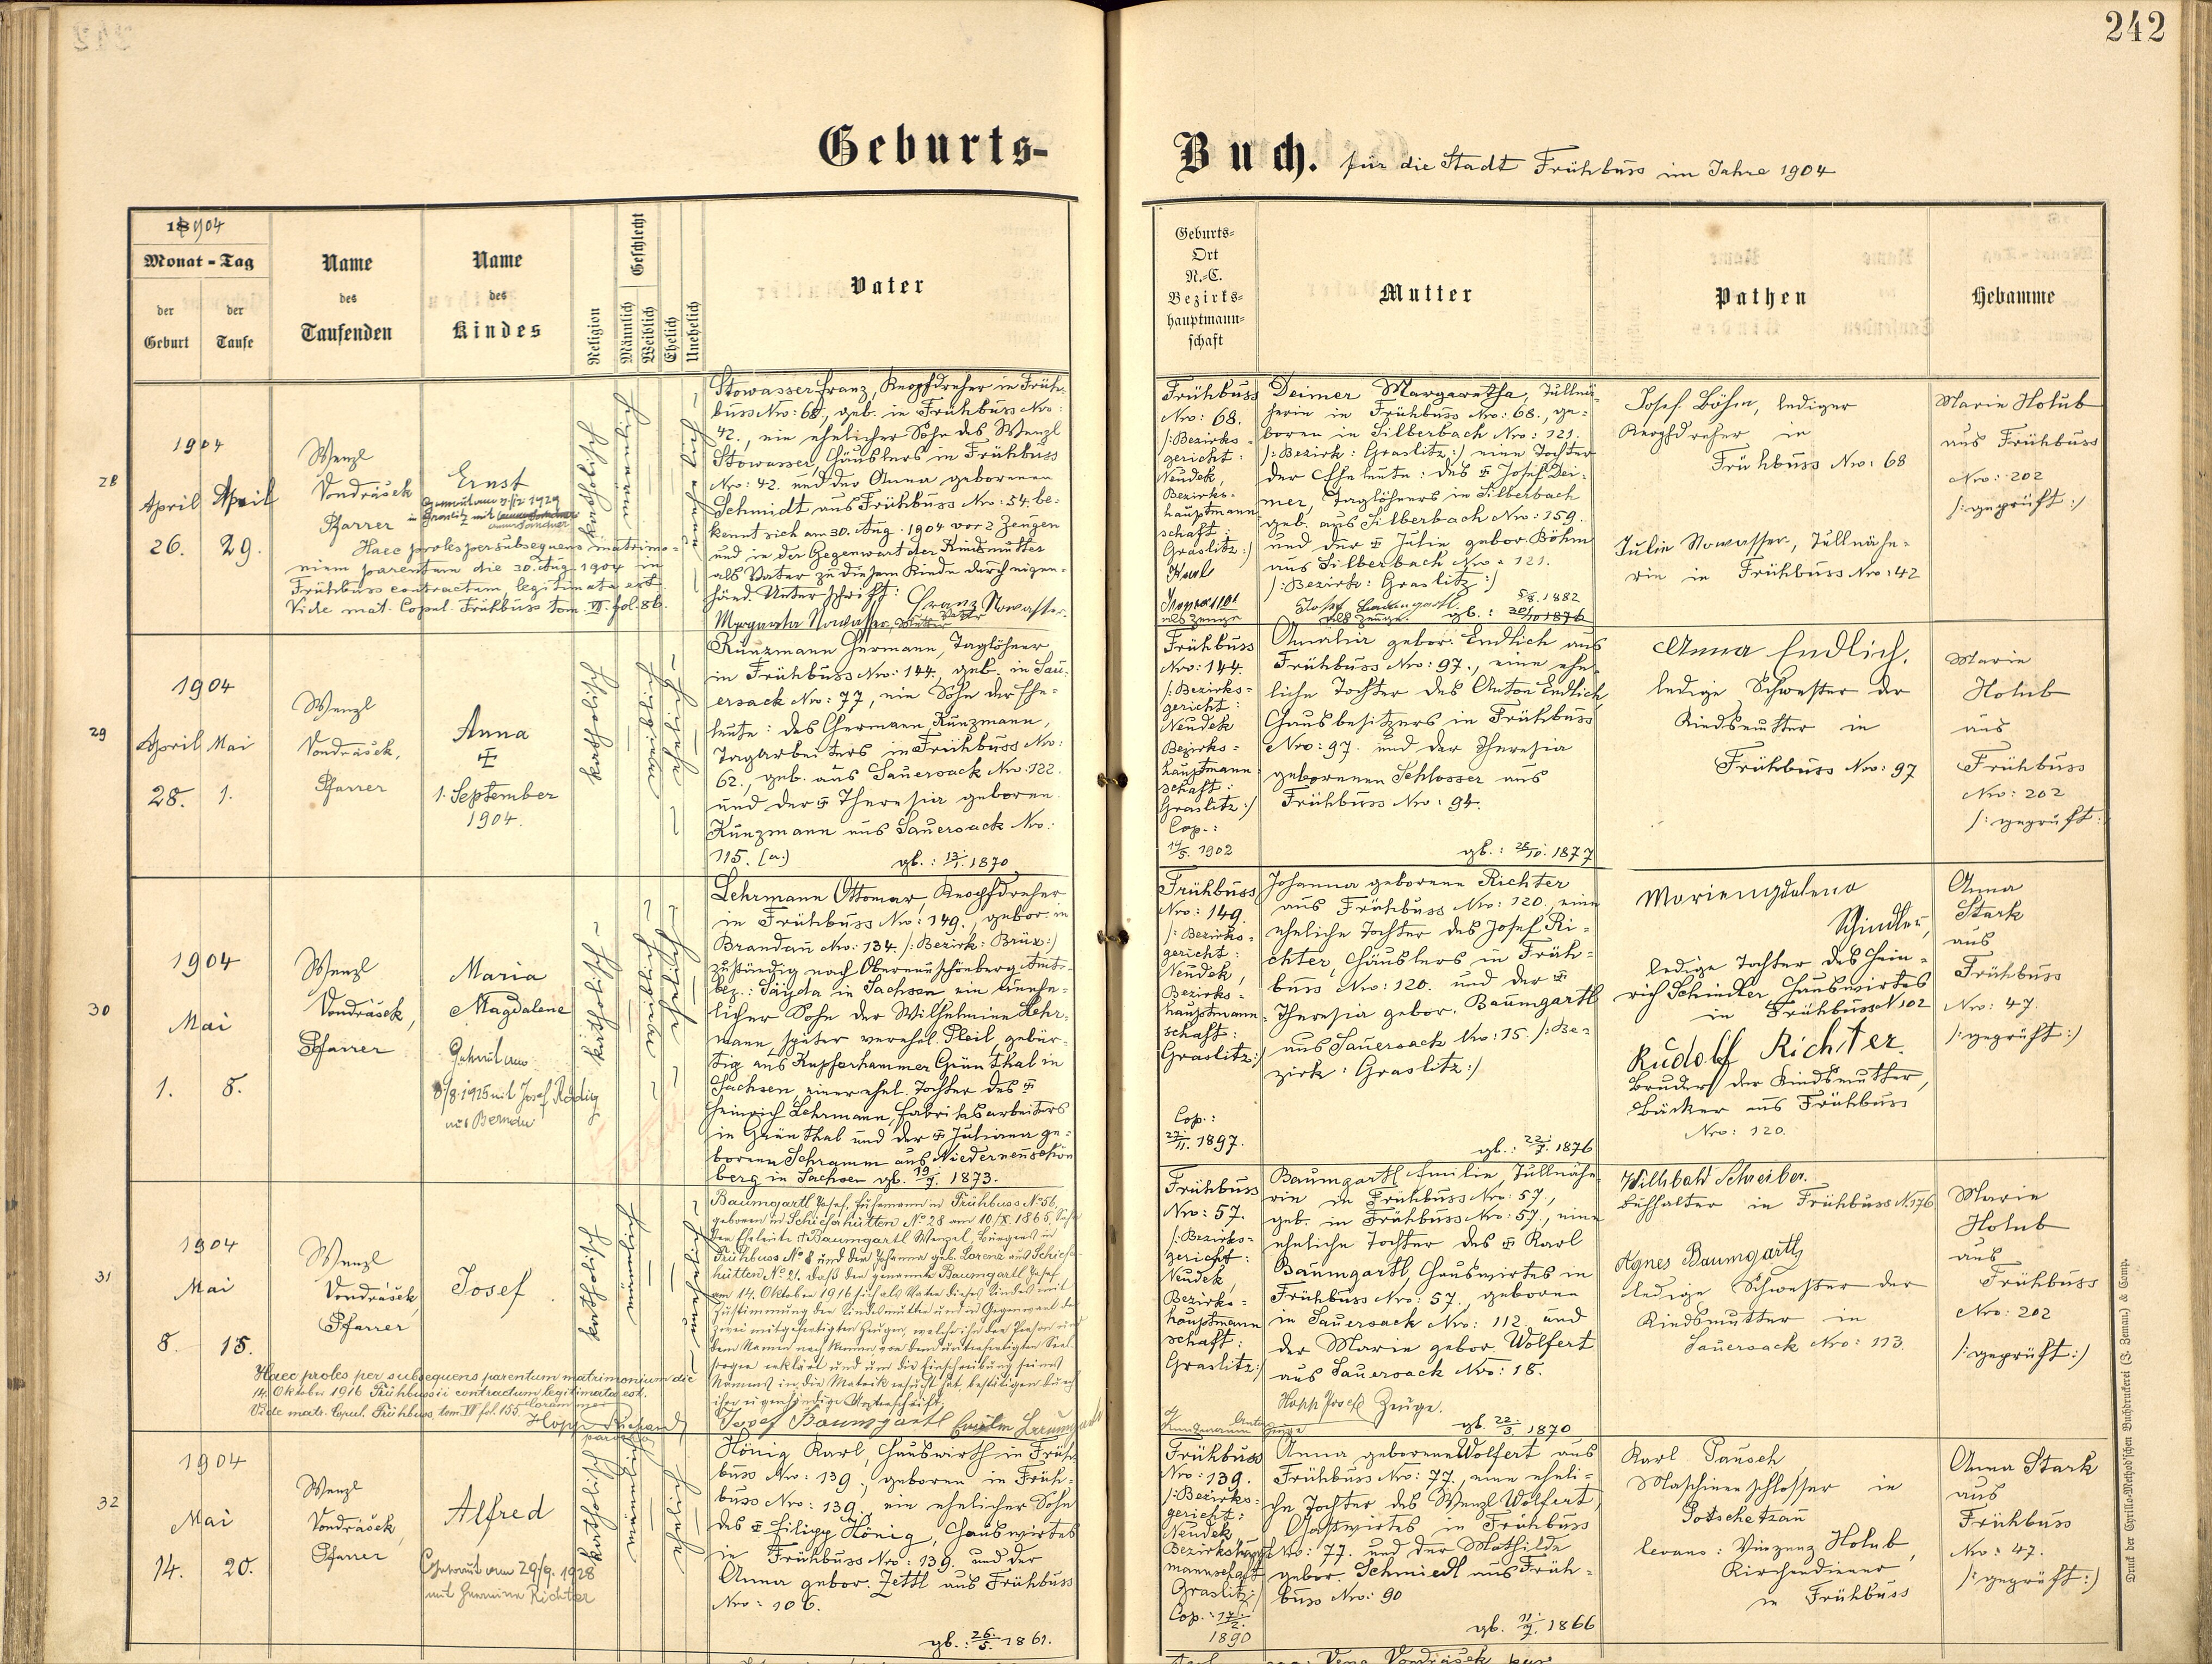 242
Geburts-
Buch. für die Stadt Frühbuss im Jahre 1904
1904
Monat - Tag
der Geburt
der Taufe
Name des Taufenden
Name des Kindes
Religion
Geschlecht
Männlich
Weiblich
Ehelich
Unehelich
Vater
Geburts=
Ort
N.-C.
Bezirks=
hauptmann=
schaft
Mutter
Pathen
Hebamme
28
1904
April April
26. 29.
Wenzl
Vondrášek
Pfarrer
Ernst
Haec proles per subsequens matrimo-
nium parentum die 30. Aug. 1904 in
Frühbuss contractum, legitimata est.
Vide mat. Copul. Frühbuss tom. VI. fol. 86.
katholisch
Stowasser Franz, Knopfdreher in Früh-
buss Nro: 68, geb. in Frühbuss Nro:
42., ein ehelicher Sohn des Wenzl
Stowasser, Häuslers in Frühbuss
Nro: 42. und der Anna geborenen
Schmidt aus Frühbuss Nro: 54. be-
kennt sich am 30. Aug. 1904 vor 2 Zeugen
und in der Gegenwart der Kindsmutter
als Vater zu diesem Kinde durch eigen-
händ. Unterschrift: Franz Stowasser
Vater
Margareta Stowasser, Mutter
Frühbuss
Nro: 68.
/:Bezirks-
gericht:
Neudek,
Bezirks-
hauptmann
schaft:
Graslitz:/
Karl
als Zeuge
Deimer Margaretha, Tüllnä-
herin in Frühbuss Nro: 68., ge-
boren in Silberbach Nro: 121.
/:Bezirk: Graslitz:/ eine Tochter
der Eheleute: des Josef Dei-
mer, Taglöhners in Silberbach
geb. aus Silberbach Nro: 159.
und der Julie gebor. Böhm
aus Silberbach Nro: 121.
/:Bezirk: Graslitz:/
Josef Baumgartl
als Zeuge.
5/8. 1882
gb.: 30/10 1876
Josef Böhm, lediger
Knopfdreher in
Frühbuss Nro: 68
Julie Stowasser, Tüllnähe-
rin in Frühbuss Nro: 42
Marie Holub
aus Frühbuss
Nro: 202
/:geprüft:/
29
1904
April Mai
28. 1.
Wenzl
Vondrášek,
Pfarrer
Anna
1. September
1904.
katholisch
Kunzmann Hermann, Taglöhner
in Frühbuss Nro: 144, geb. in Sau-
ersack Nro: 77, ein Sohn der Ehe-
leute: des Hermann Kunzmann,
Tagarbeiters in Frühbuss Nro:
62., geb. aus Sauersack Nro. 122.
und der Theresia geboren.
Kunzmann aus Sauersack Nro:
115. (a.)
gb.: 13/1. 1870
Frühbuss
Nro: 144.
/:Bezirks-
gericht:
Neudek
Bezirks-
hauptmann
schaft:
Graslitz:/
Cop.:
14/5. 1902
Amalia gebor. Endlich aus
Frühbuss Nro: 97., eine ehe-
liche Tochter des Anton Endlich,
Hausbesitzers in Frühbuss
Nro: 97. und der Theresia
geborenen Schlosser aus
Frühbuss Nro: 94.
gb.: 28/10. 1877
Anna Endlich.
ledige Schwester der
Kindsmutter in
Frühbuss Nro: 97
Marie
Holub
aus
Frühbuss
Nro: 202
/: geprüft:/
30
1904
Mai
1. 8.
Wenzl
Vondrášek,
Pfarrer
Maria
Magdalene
Getraut am
8/8. 1925 mit Josef
katholisch
Lehrmann Ottomar, Knopfdreher
in Frühbuss Nro: 149., gebor. in
Brandau Nro: 134. /:Bezirk: Brüx:/
zuständig nach Oberneuschönberg Amts-
bez.: Sayda in Sachsen ein unehe-
licher Sohn der Wilhelmine Lehr-
mann, später verehel. Pleil, gebür-
tig aus Kupferhammer Grünthal in
Sachsen, einer ehel. Tochter des
Heinrich Lehrmann, Fabriksarbeiters
in Grünthal und der Juliana ge-
borenen Schramm aus Niederneuschön
berg in Sachsen gb. 1873.
Frühbuss
Nro: 149.
/:Bezirks-
gericht:
Neudek,
Bezirks-
hauptmann-
schaft:
Graslitz:/
Cop.:
27/11. 1897.
Johanna geborene Richter
aus Frühbuss Nro: 120. eine
eheliche Tochter des Josef Ri-
chter, Häuslers in Früh-
buss Nro: 120. und der
Theresia gebor. Baumgartl
aus Sauersack Nro: 15. /:Be-
zirk: Graslitz:/
gb.: 22/7. 1876
Schindler,
ledige Tochter des Hein-
rich Schindler, Hauswirtes
in Frühbuss N. 102
Rudolf Richter.
Bruder der Kindsmutter,
Bäcker aus Frühbuss
Nro: 120.
Anna
Stark
aus
Frühbuss
Nro: 47.
/:geprüft:/
31
1904
Mai
8. 15.
Wenzl
Vondrášek
Pfarrer
Josef
Haec proles per subsequens parentum matrimonium die
14. Oktober 1916 Frühbussii contractum legitimata est.
Vide matr. Copul. Frühbuss, tom. VI fol. 155. Coram me:
katholisch
Baumgartl Josef, in Frühbuss No 56,
geboren in Schieferhütten No 28 am 10./X. 1865, Sohn
der Eheleute † Baumgartl Wenzel, Bürgers in
Frühbuss No 8 und der Johanna geb. Lorenz aus Schiefer-
hütten No 21. Daß der genannte Baumgartl Josef
am 14. Oktober 1916 sich als Vater dieses Kindes mit
Zustimmung der Kindesmutter und in Gegenwart der
zwei mitgefertigten Zeugen, welche ihn der Person und
dem Namen nach kennen vor dem unterfertigten Seel-
sorger erklärt und um die Einschreibung seines
Namens in die Matrik ersucht hat, bestätigen durch
ihre eigenhändige Unterschrift:
Josef Baumgartl
Frühbuss
Nro: 57.
/:Bezirks-
gericht:
Neudek,
Bezirks-
hauptmann
schaft:
Graslitz:/
Baumgartl Emilie, Tüllnähe-
rin in Frühbuss Nro: 57.,
geb. in Frühbuss Nro: 57., eine
eheliche Tochter des Karl
Baumgartl, Hauswirtes in
Frühbuss Nro: 57., geboren
in Sauersack Nro: 112 und
der Marie gebor. Wolfert
aus Sauersack Nro: 18.
Hopp Josef Zeuge.
gb. 22/3. 1870
Willibald Schreiber.
Buchhalter in Frühbuss N. 176
Agnes Baumgartl
ledige Schwester der
Kindsmutter in
Sauersack Nro: 113.
Marie
Holub
aus
Frühbuss
Nro: 202
/:geprüft:/
32
1904
Mai
14. 20.
Wenzl
Vondrášek,
Pfarrer
Alfred
Getraut am 29/9. 1928
mit Hermine Richter
katholisch
König Karl, Hauswirth in Früh-
buss Nro: 139., geboren in Früh-
buss Nro: 139., ein ehelicher Sohn
des Filipp König, Hauswirtes
in Frühbuss Nro: 139. und der
Anna gebor. Zettl aus Frühbuss
Nro: 106.
gb.: 26/5. 1861.
Frühbuss
Nro: 139.
/:Bezirks-
gericht:
Neudek
Bezirkshaupt
mannschaft
Graslitz:/
Cop.:
1890
Anna geborene Wolfert aus
Frühbuss Nro: 77., eine eheli-
che Tochter des Wenzl Wolfert,
Gastwirtes in Frühbuss
Nro: 77. und der Mathilde
gebor. Schmiedl aus Früh-
buss Nro: 90
gb. 1866
Karl Pausch
Maschinenschlosser in
Potschetzau
levans: Vinzenz Holub,
Kirchendiener
in Frühbuss
Anna Stark
aus
Frühbuss
Nro: 47.
/:geprüft:/
Druck der Cyrillo-Method'schen Buchdruckerei (J. Zeman) & Comp.